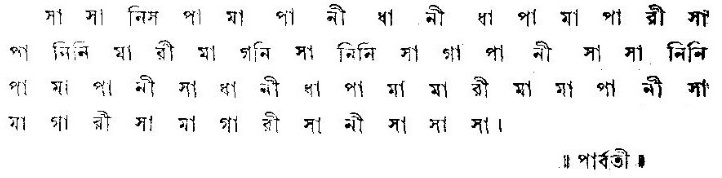 সা সা নিস পা মা পা নী ধা নী ধা পা মা পা রী সা
পা নিনি মা রী মা গনি সা নিনি সা গা পা নী সা সা নিনি
পা মা পা নী সা ধা নী ধা পা মা মা রী মা মা পা নী সা
মা গা রী সা মা গা রী সা নী সা সা সা।
॥ পার্বতী ॥